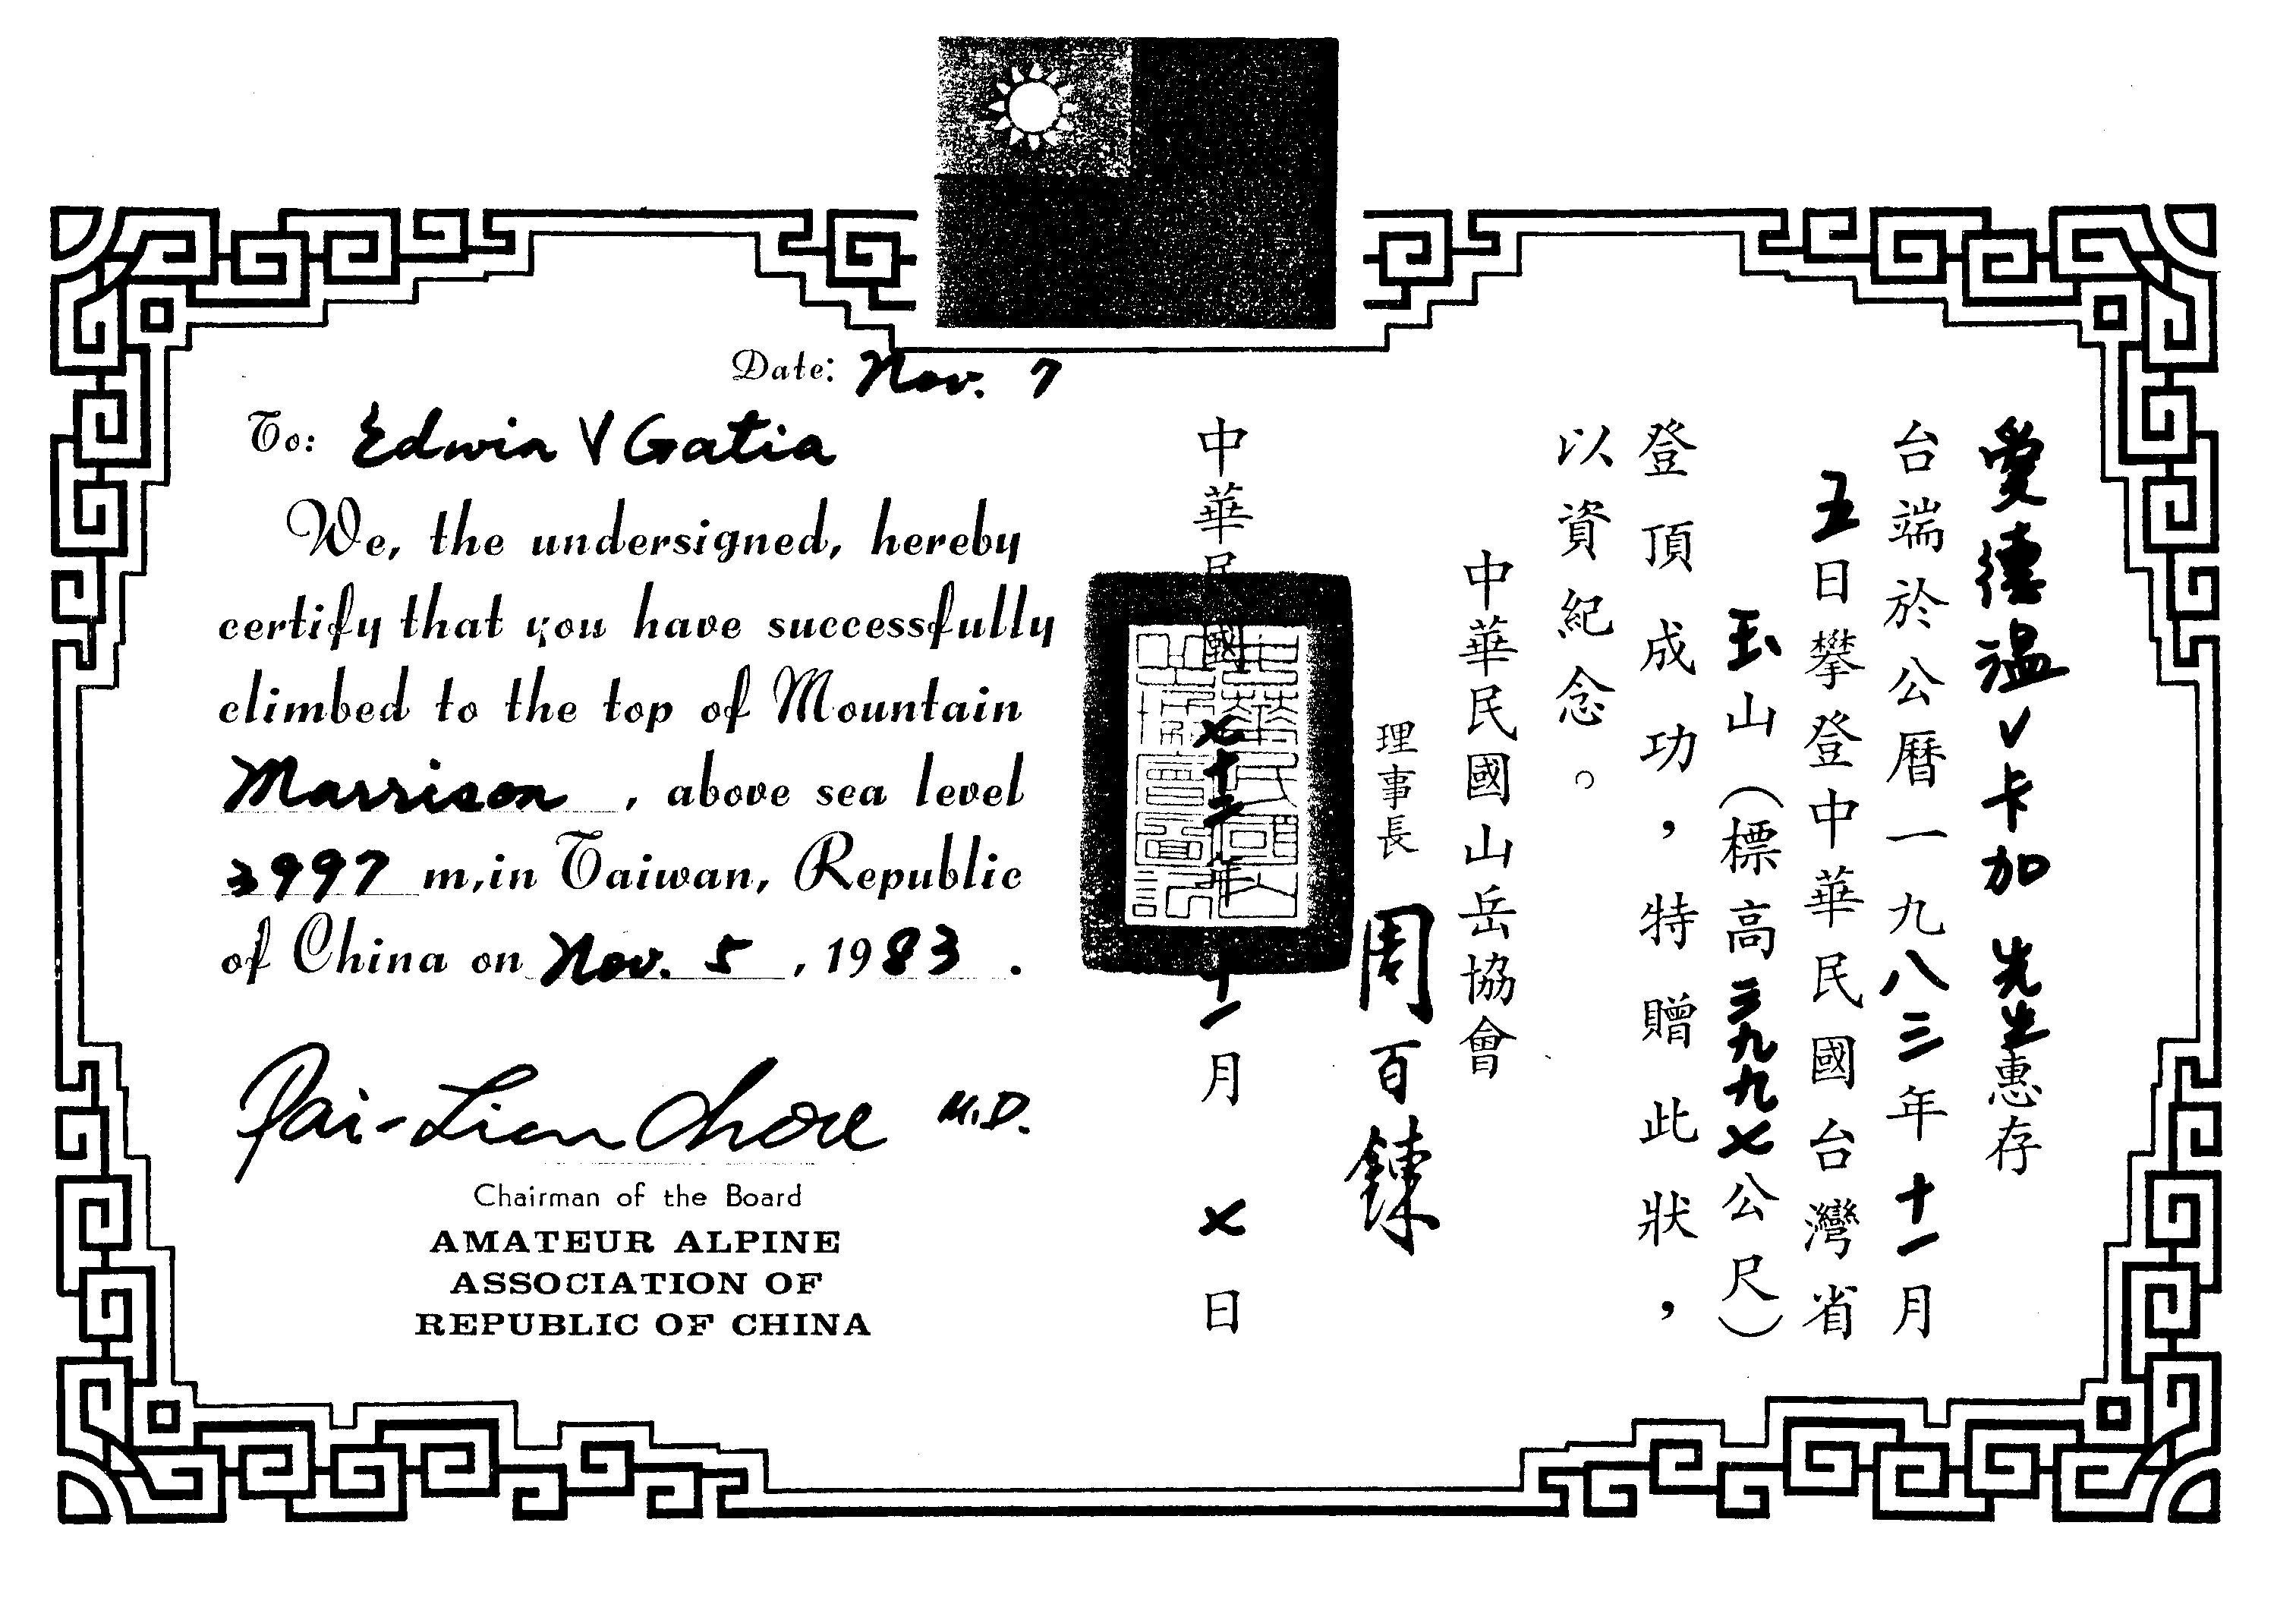 Date: Nov. 7
To: Edwin V Gatia
We, the undersigned, hereby
certify that you have successfully
climbed to the top of Mountain
Marrison, above sea level
3997 m, in Taiwan, Republic
of China on Nov. 5, 1983.
Pai-Lien Chou M.D.
Chairman of the Board
AMATEUR ALPINE
ASSOCIATION OF
REPUBLIC OF CHINA
愛德溫V卡加 先生惠存
台端於公曆一九八三年十一月
五日攀登中華民國台灣省
玉山(標高三九九七公尺)
登頂成功,特贈此狀,
以資紀念。
中華民國山岳協會
理事長 周百鍊
中華民國七十二年十一月七日